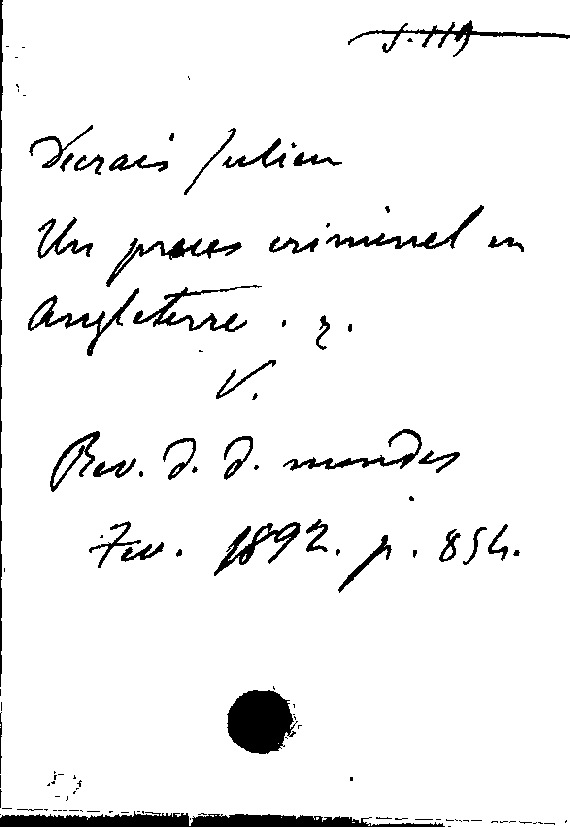 Decrais Julien
Un proces criminel en
Angleterre . r.
V.
Rev. d. d. mondes
Fev. 1892. p. 854.